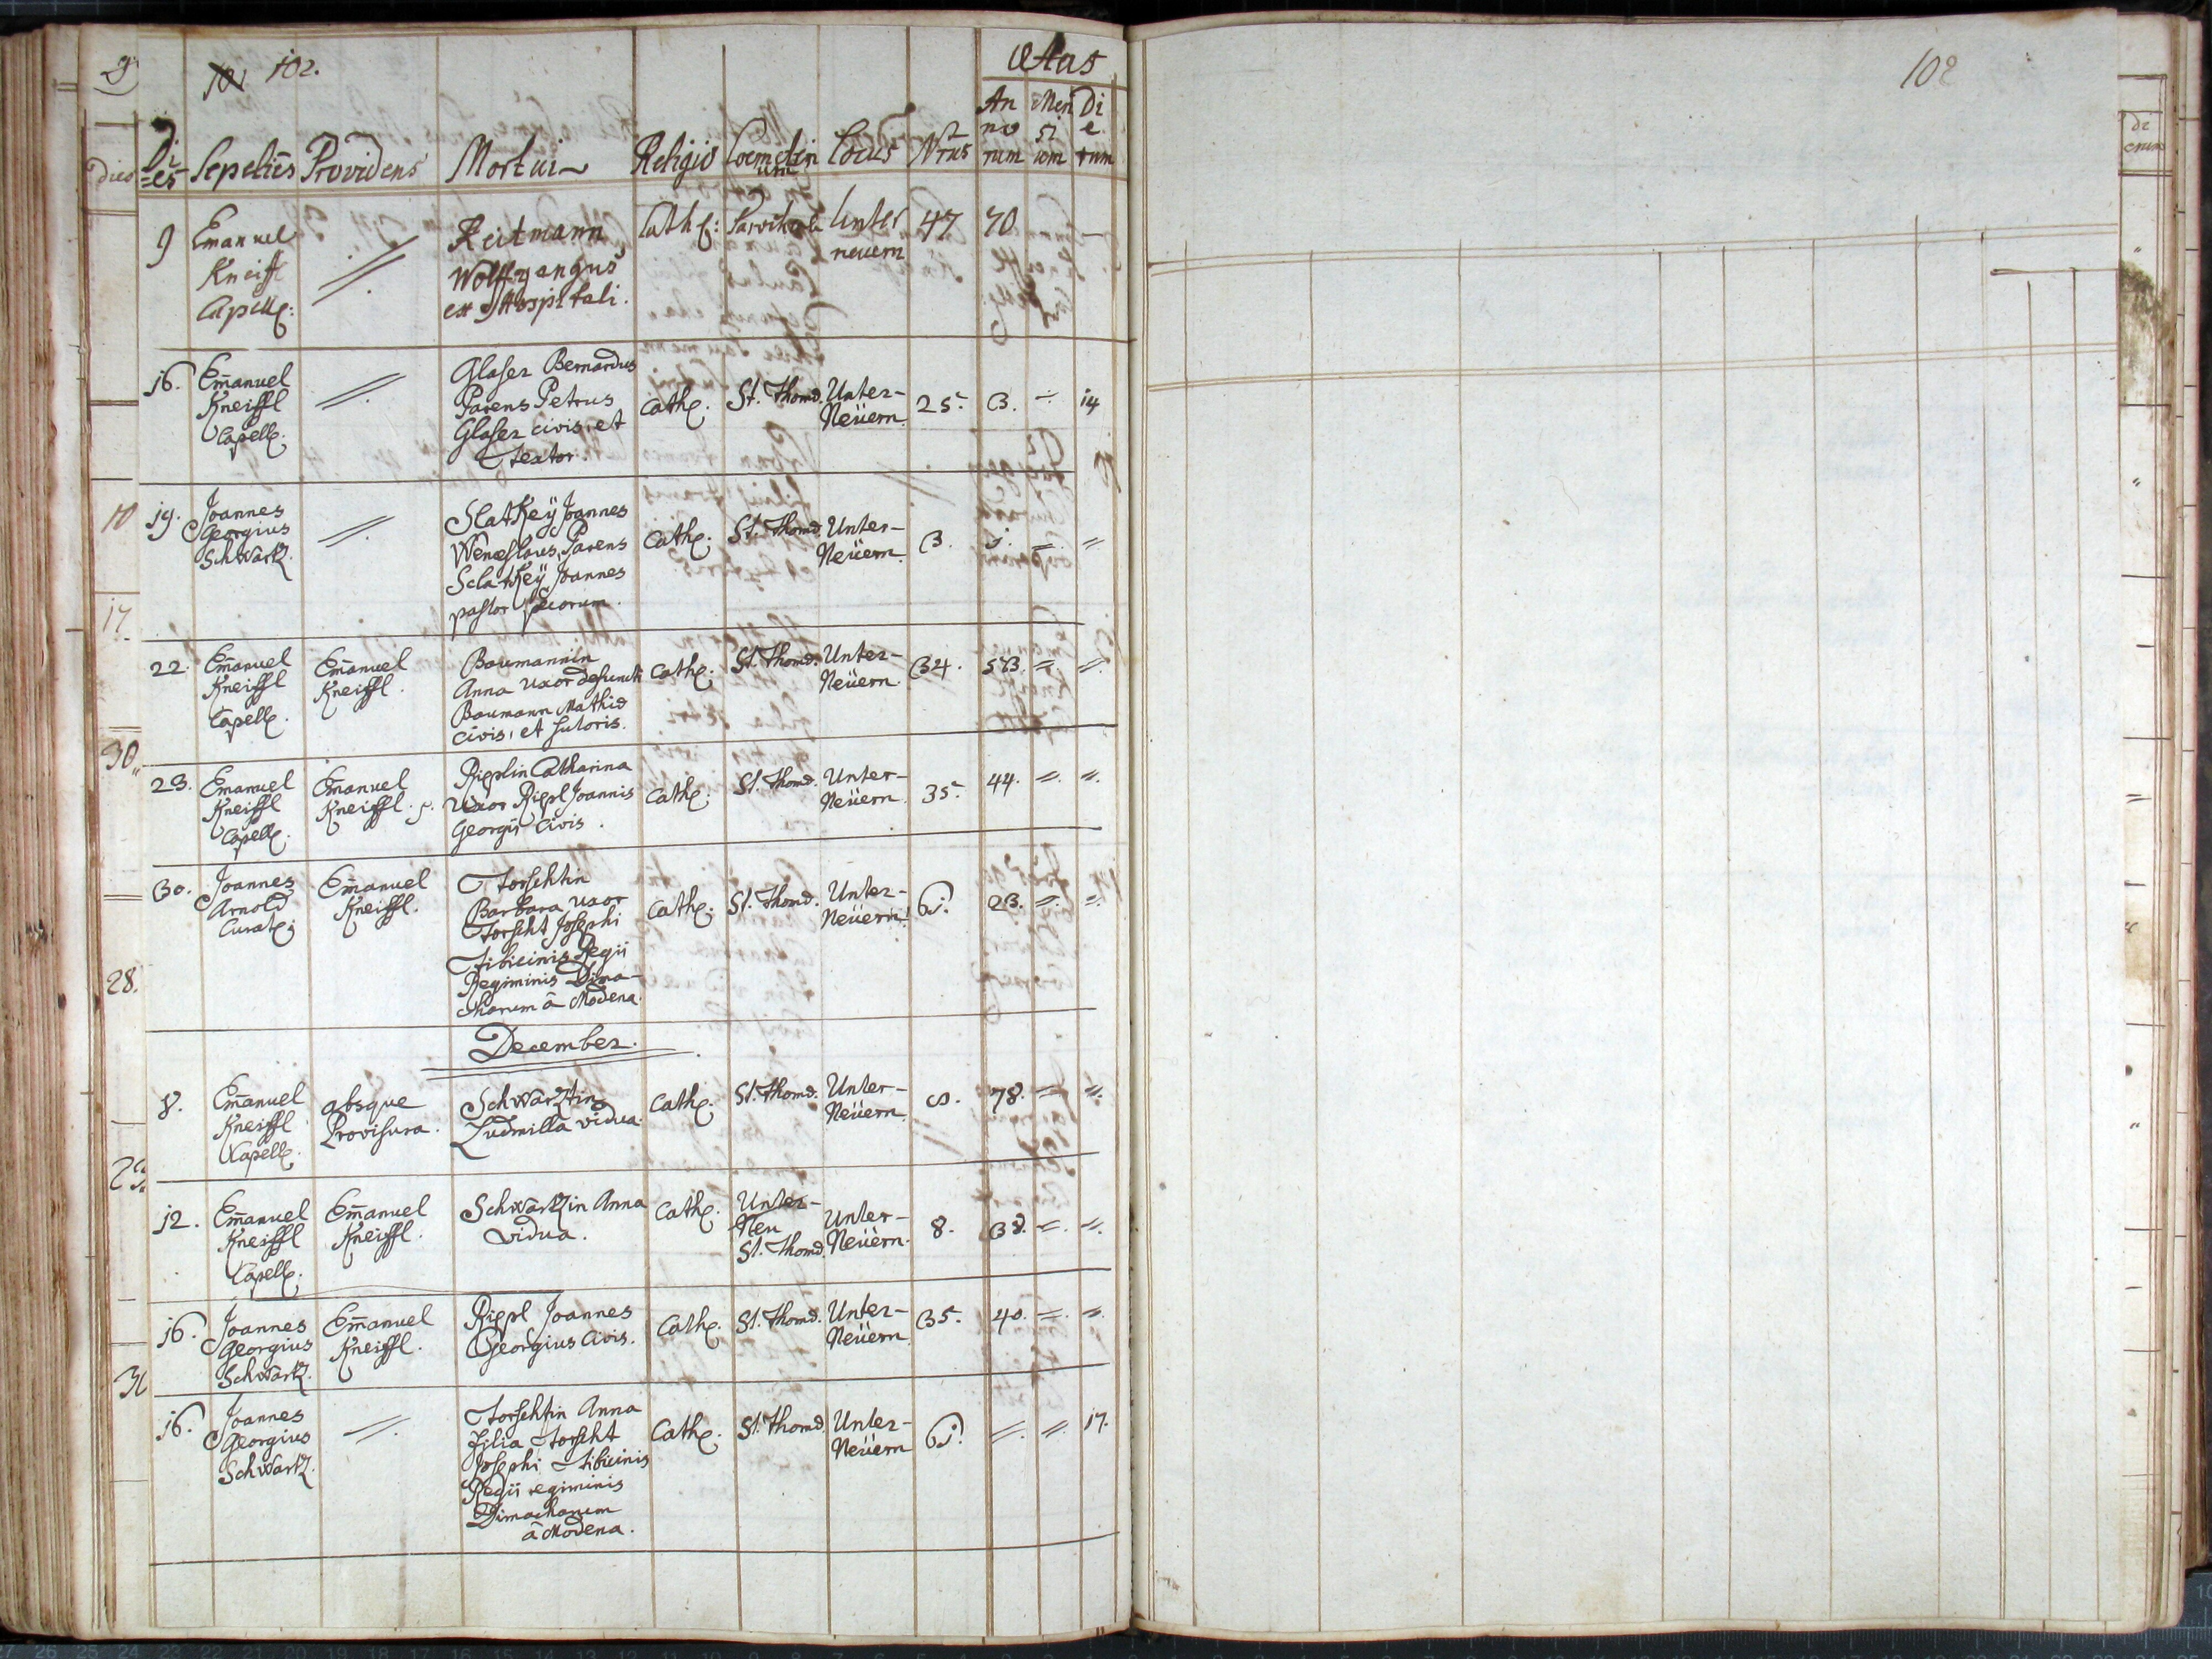 101 102.
Ætas
Dies Sepeliens Providens Mortui Religio Coemeterium Locus Nrus Annorum Mensium Dierum
9 Emanuel Kneiffl Capell:
Reitmann
Wolffgangus
ex Hospitali.
Cath: Unter neuern 47 70 —
16. Emanuel Kneiffl Capell.
Glaser Bernardus
Parens Petrus
Glaser civis, et
Textor.
Cath. St. Thomæ. Unter-Neüern. 25. 3. 14
19. Joannes Georgius Schwartz.
Slatkeÿ Joannes
Wenceslaus, Parens
Sclatkeÿ Joannes
pastor pecorum.
Cath. St. Thomæ Unter-Neüern. 3. 1. = =
22. Emanuel Kneiffl Capell.
Emanuel Kneiffl.
Baumannin
Anna uxor defuncti
Baumann Mathiæ
civis, et sutoris.
Cath. St. Thomæ. Unter-Neüern. 34. 53. = =
23. Emanuel Kneiffl Capell.
Emanuel Kneiffl.
Rieplin Catharina
Uxor Riepl Joannis
Georgii Civis.
Cath. St. Thomæ. Unter-Neüern. 35. 44. = =.
30. Joannes Arnold Curat.
Emanuel Kneiffl.
Torschtin
Barbara uxor
Torscht Josephi
Tibicinis Regii
Regiminis Dima-
charum â Modena.
Cath. St. Thomæ. Unter-Neüern. 61. 23. = =.
December.
8. Emanuel Kneiffl Capell.
absque Provisura.
Schwartzin
Ludmilla vidua.
Cath. St. Thomæ. Unter-Neüern. 78. = =.
12. Emanuel Kneiffl Capell.
Emanuel Kneiffl.
Schwartzin Anna
vidua.
Cath. Unter-Neu St. Thomæ. Unter-Neüern. 8. 38. = =.
16. Joannes Georgius Schwartz.
Emanuel Kneiffl.
Riepl Joannes
Georgius Civis.
Cath. St. Thomæ. Unter-Neüern. 35. 40. = =.
16. Joannes Georgius Schwartz.
Torschtin Anna
filia Torscht
Josephi Tibicinis
Regii regiminis
Dimacharum
â Modena.
Cath. St. Thomæ. Unter-Neüern 61. = = 17.
102